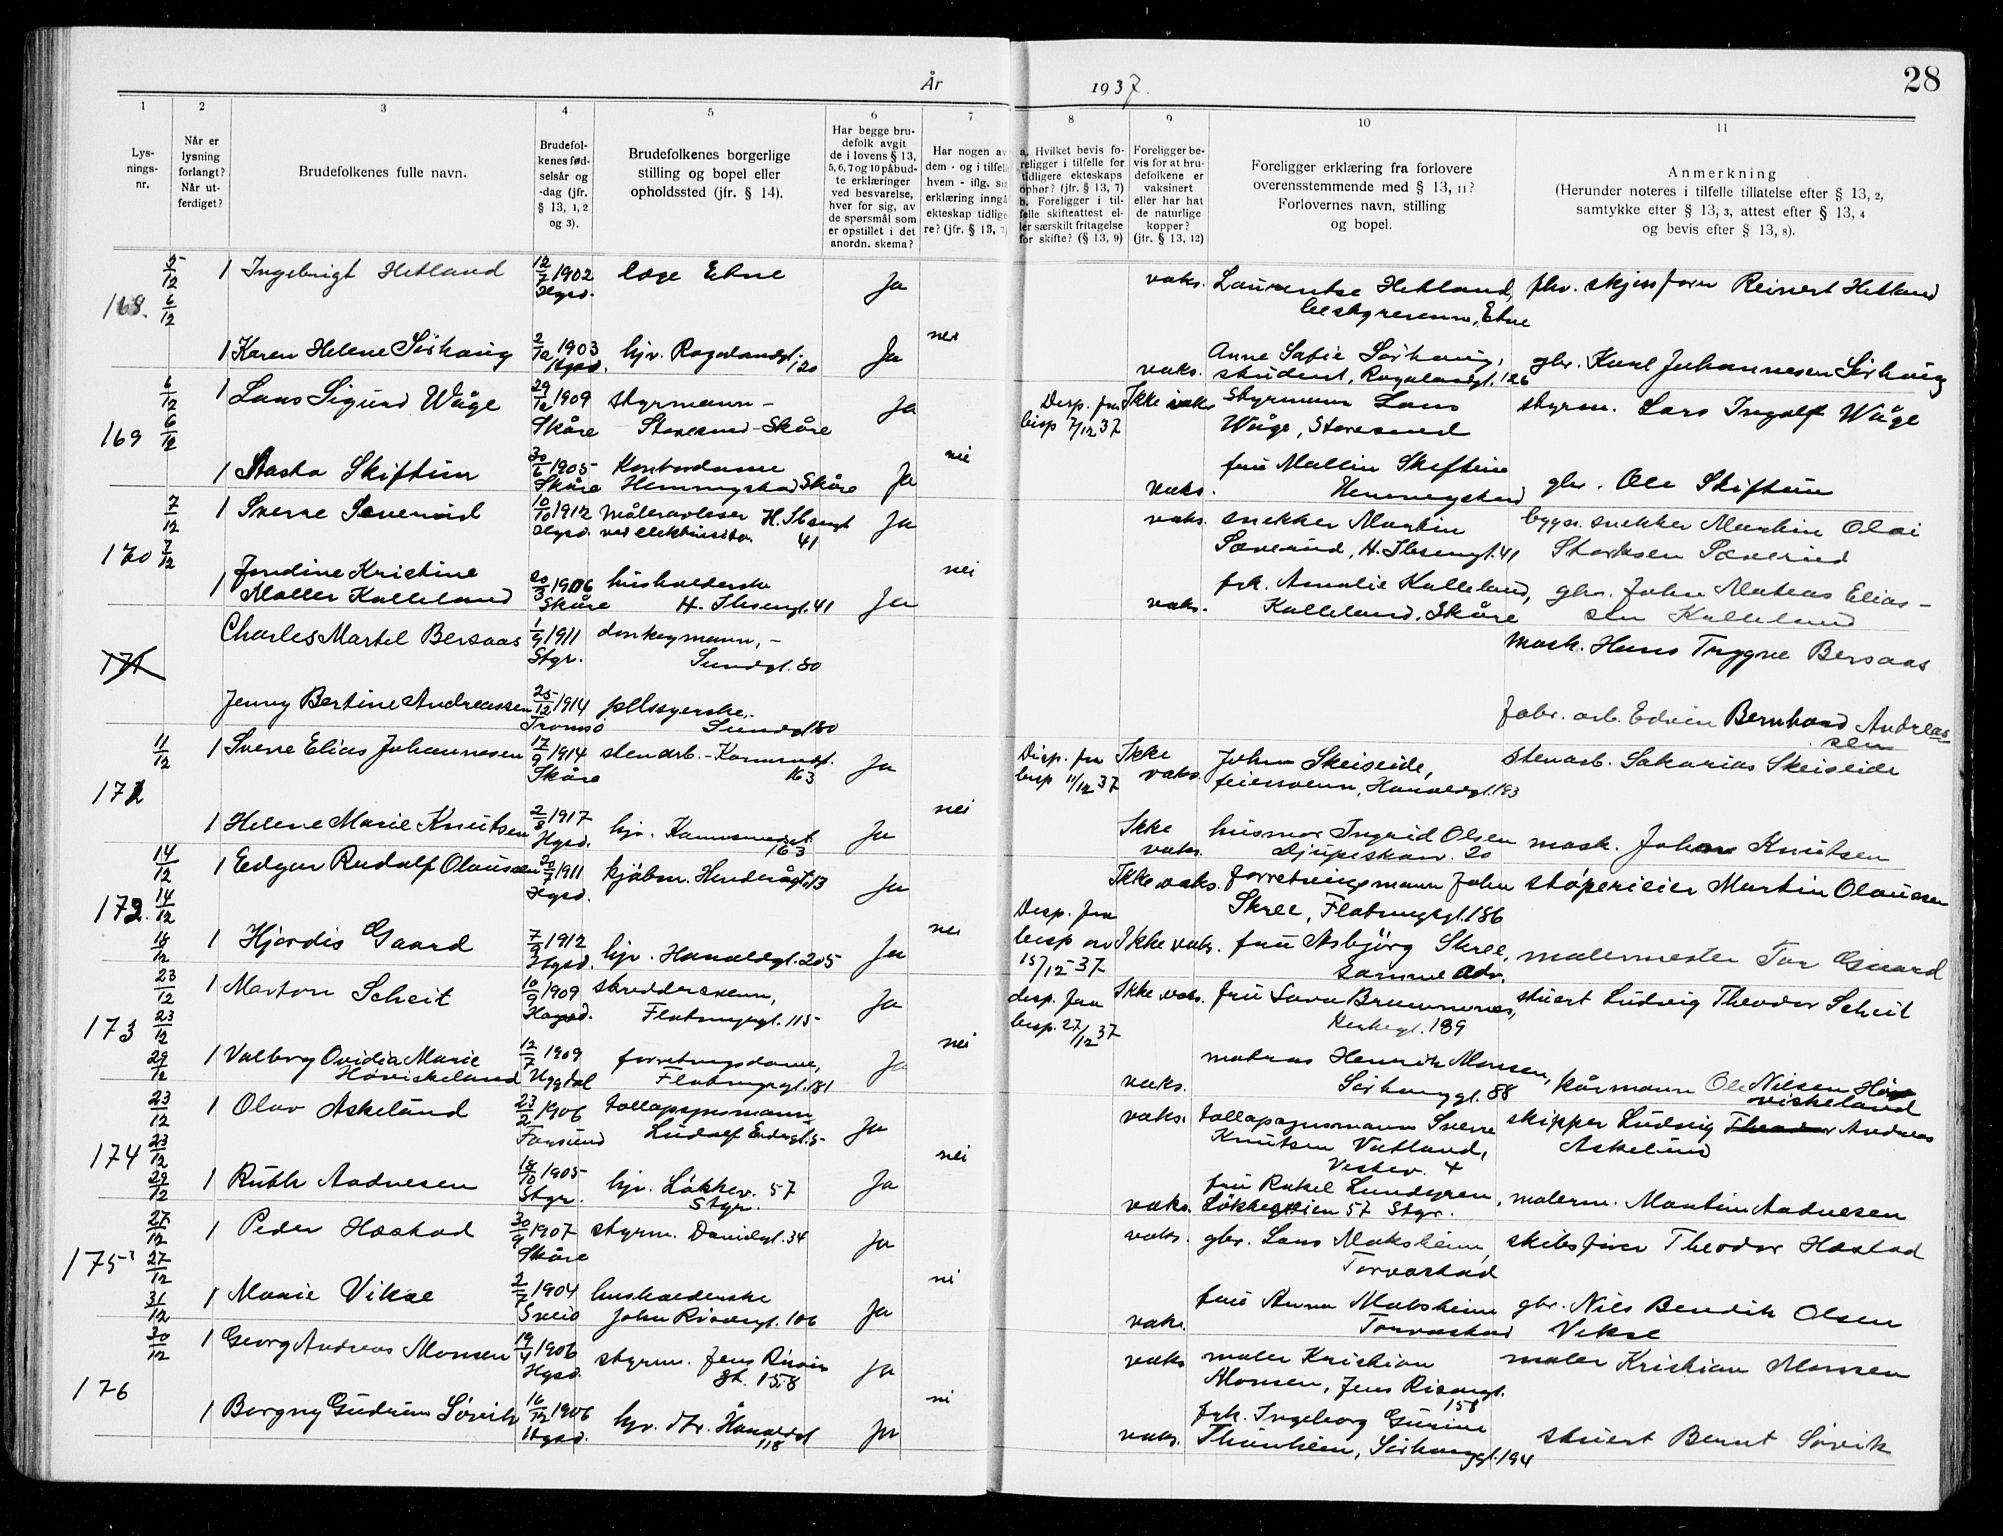 År 1937.
28
1 2 3 4 5 6 7 8 9 10 11
Lys-
nings-
nr.
Når er
lysning
forlangt?
Når ut-
ferdiget?
Brudefolkenes fulle navn.
Brudefol-
kenes fød-
selsår og
-dag (jfr.
§ 13, 1, 2
og 3).
Brudefolkenes borgerlige
stilling og bopel eller
opholdssted (jfr. § 14).
Har begge bru-
defolk avgit
de i lovens § 13,
5, 6, 7 og 10 påbud-
te erklæringer
ved besvarelse,
hver for sig, av
de spørsmål som
er opstillet i det
anordn. skema?
Har nogen av
dem - og i tilfelle
hvem - iflg. sin
erklæring inngå
ekteskap tidlige
re? (jfr. § 13, 7)
a. Hvilket bevis fo-
religger i tilfelle for
tidligere ekteskaps
ophør? (jfr. § 13, 7)
b. Foreligger i til-
felle skifteattest el-
ler særskilt fritagelse
for skifte? (§ 13, 9)
Foreligger be-
vis for at bru-
defolkene er
vaksinert
eller har hat
de naturlige
kopper?
(jfr. § 13, 12)
Foreligger erklæring fra forlovere
overensstemmende med § 13, 11?
Forlovernes navn, stilling
og bopel.
Anmerkning
(Herunder noteres i tilfelle tillatelse efter § 13, 2,
samtykke efter § 13, 3, attest efter § 13, 4
og bevis efter § 13, 8).
168. 5/12 6/12 1 Ingebrigt Hetland 12/7 1902 Hgsd. læge Etne Ja vaks. Laurentse Hetland,
bestyrerinne, Etne
fhv. skipsfører Reinert Hetland
1 Karen Helene Sørhaug 2/12 1903 Hgsd. hjv. Rogalandgt. 120 Ja nei vaks. Anne Sofie Sørhaug,
student, Rogalandgt. 126
gbr. Karl Johannesen Sørhaug
169 6/12 6/12 1 Lars Sigurd Wåge 29/12 1909 Skåre styrmann -
Storesund - Skåre Ja Desp. fra
bisp 7/12 37 Ikke vaks Styrmann Lars
Wåge, Storesund
styrm. Lars Ingolf Wåge
1 Aasta Skiftun 30/6 1905 Skåre Kontordame
Hemmingstad Skåre Ja nei vaks. fru Mallin Skiftun
Hemmingstad
gbr. Ole Skiftun
170 7/12 7/12 1 Sverre Sæverud 10/10 1912 Hgsd. måleravleser H. Ibsengt
ved elektrisitv. 41 Ja vaks. snekker Martin
Sæverud, H. Ibsengt. 41
bygn. snekker Martin Olai
Storksen Sæverud
1 Jondine Kristine
Møller Kalleland 20/3 1906 Skåre husholderske
H. Ibsengt. 41 Ja nei vaks. frk. Amalie Kalleland,
Kalleland, Skåre
gbr. John Mateas Elias-
sen Kalleland
171 Charles Martel Bersaas 1/9 1911 Stgr. donkeymann, -
Sundgt. 80
mask. Hans Trygve Bersaas
Jenny Bertine Andreassen 25/12 1914 Tromsø pølsyerske,
Sundgt 80
fabr. arb. Edvin Bernhard Andreas-
sen
171 11/12 1 Sverre Elias Johannesen 17/9 1914 Skåre stenarb. - Karmsundgt.
163 Ja Disp. fra
bisp 11/12 37 Ikke
vaks. John Skeiseide,
feiersvenn, Haraldsgt. 193
stenarb. Sakarias Skeiseide
1 Helene Marie Knutsen 2/8 1917 Hgsd. hjv. Karmsundgt.
163 Ja nei Ikke
vaks. husmor Ingrid Olsen
Djupeskar. 20
mask. Johan Knutsen
172. 14/12 14/12 18/12 1 Edgar Rudolf Olaussen 20/7 1911 Hgsd. kjøbm. 13 Ja Ikke vaks. forretningsmann John
Skree, Flotmyrgt. 186
støperieier Martin Olaussen
1 Hjørdis Gaard 7/9 1912 Hgsd. hjv. Haraldsgt. 205 Ja nei Desp. fra
bisp av
15/12-37 Ikke vaks. fru Asbjørg Skree,
samme adr.
malermester Tor Gaard
173 23/12 23/12 29/12 1 Marton Scheit 10/9 1909 Haugsd. skreddersvenn,
Flotmyrgt. 115 Ja desp. fra
bisp. 27/12 37 Ikke vaks. fru Sara
Kirkegt. 189
stuert Ludvig Theodor Scheit
1 Valborg Ovidia Marie
Høviskeland 12/7 1909 Uggdal forretningsdame,
Flotmyrgt. 181 Ja nei vaks. matros Henrik Monsen,
Sørhauggt. 88
kårmann Ole Nilsen Høv
viskeland
174 23/12 23/12 29/12 1 Olav Askelund 23/2 1906 Farsund tollopsynsmann
Ludolf Eidegt. 5 Ja vaks. tollopsynsmann Sverre
Knutsen Vatland,
Vestev. 4
skipper Ludvig Theodor Andreas
Askelund
1 Ruth Aadnesen 18/10 1905 Stgr. hjv. Løkkev. 57
Stgr. Ja nei vaks. fru Rakel Lundgren,
Løkkeveien 57 Stgr.
malerm. Martin Aadnesen
175 27/12 27/12 31/12 1 Peder Hæstad 30/9 1907 Skåre styrm. Davidgt. 34 Ja vaks. gbr. Lars Maksheim,
Torvastad
skibsfører Theodor Hæstad
1 Marie Vikse 2/7 1904 Sveio husholderske
John Risøesgt. 106 Ja ni vaks. fru Anna Maksheim
Torvastad
gbr. Nils Bendik Olsen
Vikse
176 30/12 1 Georg Andreas Monsen 19/4 1906 Hgsd. styrm. Jens Risøen
gt. 158 Ja vaks maler Kristian
Monsen, Jens Risøengt.
158
maler Kristian Monsen
1 Borgny Gudrun Sørvik 16/12 1906 Hgsd. hjv. dtr. Haraldsgt
118 Ja ni vaks. frk. Ingeborg Gurine
Thunheim, Sørhauggt. 194
stuert Bernt Sørvik